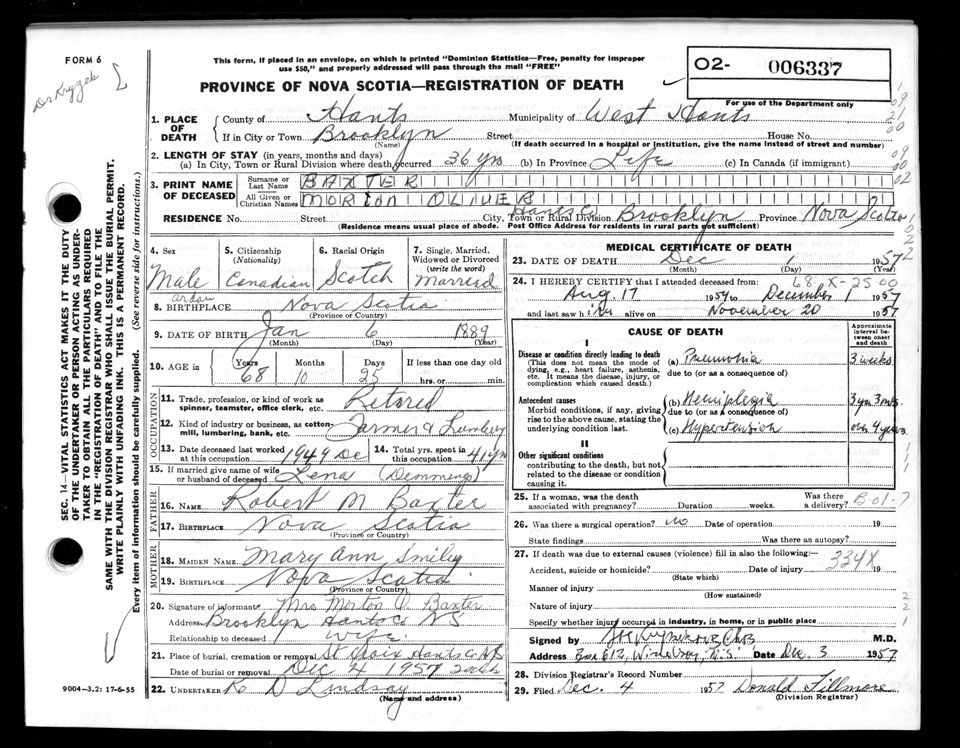 FORM 6
This form, if placed in an envelope, on which is printed "Dominion Statistics—Free, penalty for improper
use $50," and properly addressed will pass through the mail "FREE"
O2- 006337
For use of the Department only
PROVINCE OF NOVA SCOTIA—REGISTRATION OF DEATH
SEC. 14—VITAL STATISTICS ACT MAKES IT THE DUTY
OF THE UNDERTAKER OR PERSON ACTING AS UNDER-
TAKER TO OBTAIN ALL THE PARTICULARS REQUIRED
IN THE "REGISTRATION OF DEATH" AND TO FILE THE
SAME WITH THE DIVISION REGISTRAR WHO SHALL ISSUE THE BURIAL PERMIT.
WRITE PLAINLY WITH UNFADING INK. THIS IS A PERMANENT RECORD.
Every item of information should be carefully supplied. (See reverse side for instructions.)
1. PLACE OF DEATH County of Hants Municipality of West Hants
If in City or Town Brooklyn Street House No.
(Name) (If death occurred in a hospital or institution, give the name instead of street and number)
2. LENGTH OF STAY (in years, months and days)
(a) In City, Town or Rural Division where death occurred 36 yrs (b) In Province Life (c) In Canada (if immigrant)
3. PRINT NAME OF DECEASED Surname or Last Name BAXTER
All Given or Christian Names MORTON OLIVER
RESIDENCE No. Street City, Town or Rural Division Hants Co Brooklyn Province Nova Scotia
(Residence means usual place of abode. Post Office Address for residents in rural parts not sufficient)
4. Sex Male
5. Citizenship (Nationality) Canadian
6. Racial Origin Scotch
7. Single, Married, Widowed or Divorced (write the word) Married
8. BIRTHPLACE Nova Scotia
(Province or Country)
9. DATE OF BIRTH Jan 6 1889
(Month) (Day) (Year)
10. AGE in Years 68 Months 10 Days 25 If less than one day old hrs. or min.
OCCUPATION
11. Trade, profession, or kind of work as spinner, teamster, office clerk, etc. Retired
12. Kind of industry or business, as cotton-mill, lumbering, bank, etc. Farmer & Lumbering
13. Date deceased last worked at this occupation 1949 Dec
14. Total yrs. spent in this occupation 41 yrs
15. If married give name of wife or husband of deceased Lena (Demmings)
FATHER
16. NAME Robert M Baxter
17. BIRTHPLACE Nova Scotia
(Province or Country)
MOTHER
18. MAIDEN NAME Mary Ann Smiley
19. BIRTHPLACE Nova Scotia
(Province or Country)
20. Signature of informant Mrs Morton O. Baxter
Address Brooklyn Hants Co N S
Relationship to deceased wife
21. Place of burial, cremation or removal St Croix Hants Co N.S.
Date of burial or removal Dec 4 1957
22. UNDERTAKER R D Lindsay
(Name and address)
9004—3.2: 17-6-55
MEDICAL CERTIFICATE OF DEATH
23. DATE OF DEATH Dec 1 1957
(Month) (Day) (Year)
24. I HEREBY CERTIFY that I attended deceased from:
Aug 17 1954 to December 1 1957
and last saw him alive on November 20 1957
CAUSE OF DEATH
Approximate interval between onset and death
I
Disease or condition directly leading to death (a) Pneumonia 3 weeks
(This does not mean the mode of dying, e.g., heart failure, asthenia, etc. It means the disease, injury, or complication which caused death.)
due to (or as a consequence of)
Antecedent causes (b) Hemiplegia 3 yrs 3 mts
Morbid conditions, if any, giving rise to the above cause, stating the underlying condition last.
due to (or as a consequence of)
(c) Hypertension over 4 years
II
Other significant conditions
contributing to the death, but not related to the disease or condition causing it.
25. If a woman, was the death associated with pregnancy? Duration weeks. Was there a delivery?
26. Was there a surgical operation? no Date of operation 19
State findings Was there an autopsy?
27. If death was due to external causes (violence) fill in also the following:
334X
Accident, suicide or homicide? Date of injury 19
(State which)
Manner of injury
(How sustained)
Nature of injury
Specify whether injury occurred in industry, in home, or in public place
Signed by M.D.
Address Box 612, Windsor, N.S. Date Dec. 3 1957
28. Division Registrar's Record Number
29. Filed Dec. 4 1957 Donald Fillmore
(Division Registrar)